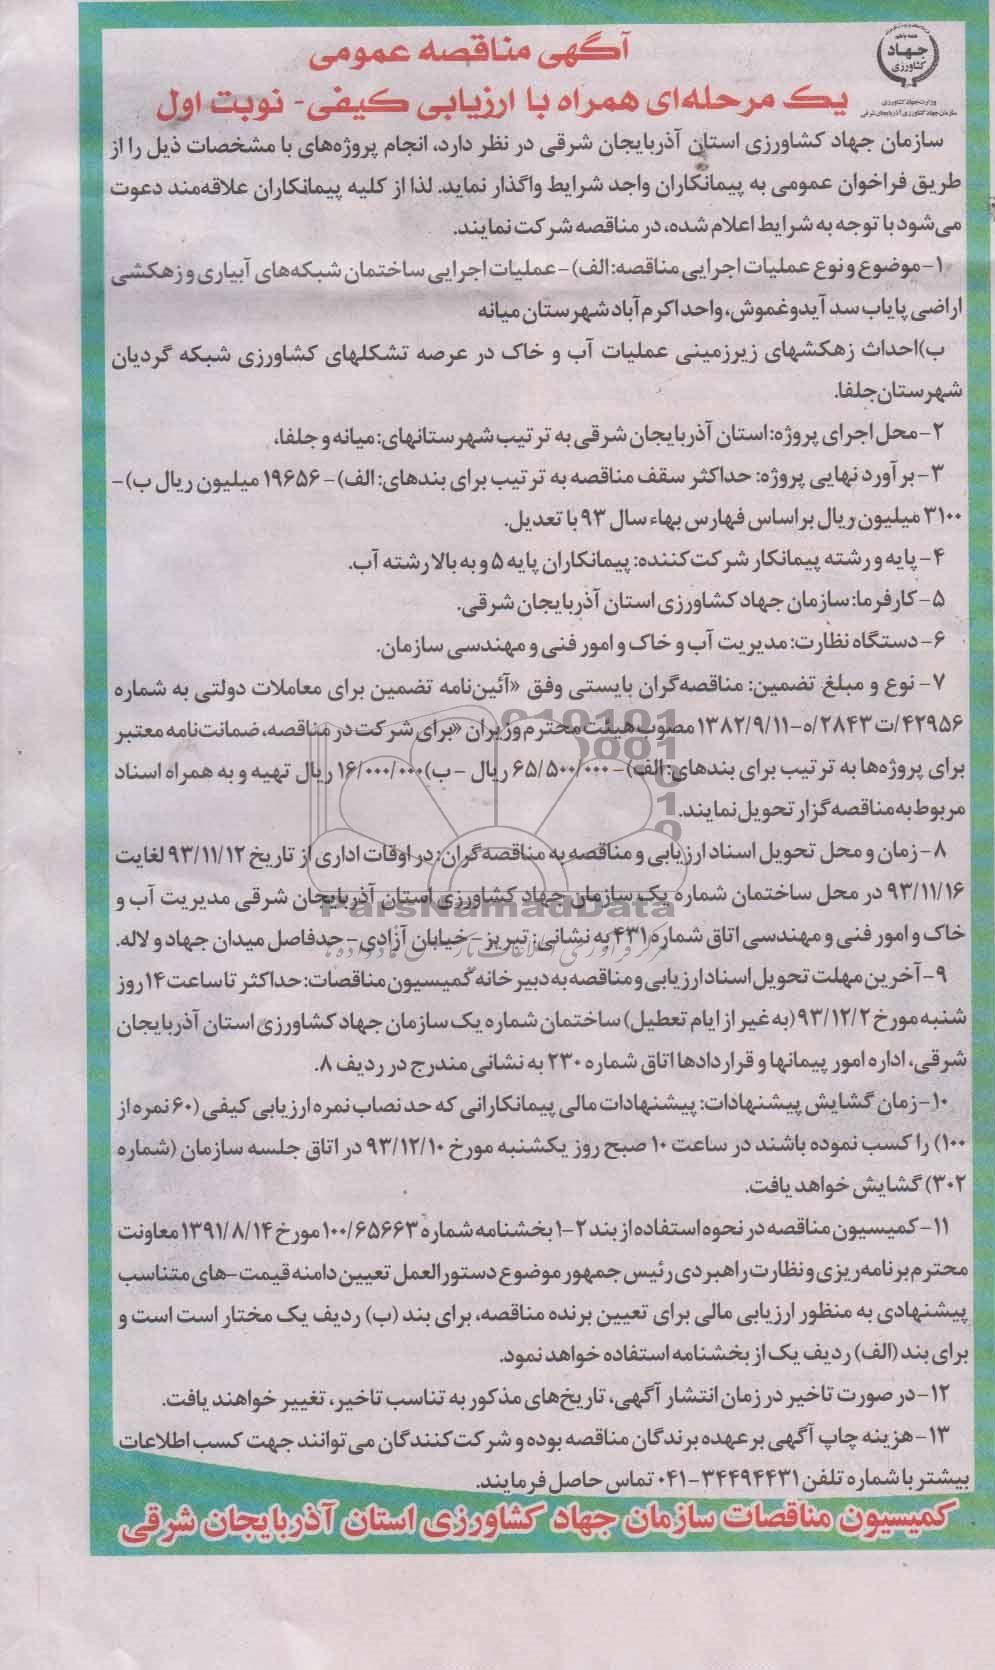 جهاد
کشاورزی
وزارت جهاد کشاورزی
سازمان جهاد کشاورزی آذربایجان شرقی
آگهی مناقصه عمومی
یک مرحله‌ای همراه با ارزیابی کیفی- نوبت اول
سازمان جهاد کشاورزی استان آذربایجان شرقی در نظر دارد، انجام پروژه‌های با مشخصات ذیل را از
طریق فراخوان عمومی به پیمانکاران واجد شرایط واگذار نماید. لذا از کلیه پیمانکاران علاقه‌مند دعوت
می‌شود با توجه به شرایط اعلام شده، در مناقصه شرکت نمایند.
۱-موضوع و نوع عملیات اجرایی مناقصه: الف)-عملیات اجرایی ساختمان شبکه‌های آبیاری و زهکشی
اراضی پایاب سد آیدوغموش، واحد اکرم آباد شهرستان میانه
ب)احداث زهکشهای زیرزمینی عملیات آب و خاک در عرصه تشکلهای کشاورزی شبکه گردیان
شهرستان جلفا.
۲-محل اجرای پروژه: استان آذربایجان شرقی به ترتیب شهرستانهای: میانه و جلفا،
۳-برآورد نهایی پروژه: حداکثر سقف مناقصه به ترتیب برای بندهای: الف)- ۱۹۶۵۶ میلیون ریال ب)-
۳۱۰۰ میلیون ریال براساس فهارس بهاء سال ۹۳ با تعدیل.
۴-پایه و رشته پیمانکار شرکت کننده: پیمانکاران پایه ۵ و به بالا رشته آب.
۵-کارفرما: سازمان جهاد کشاورزی استان آذربایجان شرقی.
۶-دستگاه نظارت: مدیریت آب و خاک و امور فنی و مهندسی سازمان.
۷- نوع و مبلغ تضمین: مناقصه‌گران بایستی وفق «آئین‌نامه تضمین برای معاملات دولتی به شماره
۴۲۹۵۶/ت ۲۸۴۳/ه-۱۳۸۲/۹/۱۱ مصوب هیئت محترم وزیران «برای شرکت در مناقصه، ضمانت‌نامه معتبر
برای پروژه‌ها به ترتیب برای بندهای: الف)- ۶۵/۵۰۰/۰۰۰ ریال - ب)۱۶/۰۰۰/۰۰۰ ریال تهیه و به همراه اسناد
مربوط به مناقصه‌گزار تحویل نمایند.
۸-زمان و محل تحویل اسناد ارزیابی و مناقصه به مناقصه‌گران: در اوقات اداری از تاریخ ۹۳/۱۱/۱۲ لغایت
۹۳/۱۱/۱۶ در محل ساختمان شماره یک سازمان جهاد کشاورزی استان آذربایجان شرقی مدیریت آب و
خاک و امور فنی و مهندسی اتاق شماره ۴۳۱ به نشانی: تبریز- خیابان آزادی-حدفاصل میدان جهاد و لاله.
۹-آخرین مهلت تحویل اسناد ارزیابی و مناقصه به دبیرخانه کمیسیون مناقصات: حداکثر تا ساعت ۱۴ روز
شنبه مورخ ۹۳/۱۲/۲ (به غیر از ایام تعطیل) ساختمان شماره یک سازمان جهاد کشاورزی استان آذربایجان
شرقی، اداره امور پیمانها و قراردادها اتاق شماره ۲۳۰ به نشانی مندرج در ردیف ۸.
۱۰-زمان گشایش پیشنهادات: پیشنهادات مالی پیمانکارانی که حد نصاب نمره ارزیابی کیفی (۶۰ نمره از
۱۰۰) را کسب نموده باشند در ساعت ۱۰ صبح روز یکشنبه مورخ ۹۳/۱۲/۱۰ در اتاق جلسه سازمان (شماره
۳۰۲) گشایش خواهد یافت.
۱۱-کمیسیون مناقصه در نحوه استفاده از بند ۲-۱ بخشنامه شماره ۱۰۰/۶۵۶۶۳ مورخ ۱۳۹۱/۸/۱۴ معاونت
محترم برنامه‌ریزی و نظارت راهبردی رئیس جمهور موضوع دستورالعمل تعیین دامنه قیمت-های متناسب
پیشنهادی به منظور ارزیابی مالی برای تعیین برنده مناقصه، برای بند (ب) ردیف یک مختار است است و
برای بند (الف) ردیف یک از بخشنامه استفاده خواهد نمود.
۱۲-در صورت تاخیر در زمان انتشار آگهی، تاریخ‌های مذکور به تناسب تاخیر، تغییر خواهند یافت.
۱۳-هزینه چاپ آگهی بر عهده برندگان مناقصه بوده و شرکت کنندگان می‌توانند جهت کسب اطلاعات
بیشتر با شماره تلفن ۳۴۴۹۴۴۳۱-۰۴۱ تماس حاصل فرمایند.
کمیسیون مناقصات سازمان جهاد کشاورزی استان آذربایجان شرقی
ParsNamadData